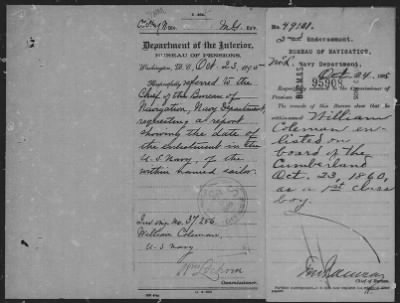 Department of the Interior,
BUREAU OF PENSIONS,
Washington, D. C., Oct. 23, 189
Respectfully referred to the
Chief of the Bureau of
Navigation, Navy Department,
requesting a report
showing the date of
the Enlistment in the
U. S. Navy, of the
within named sailor.
Inv. No. 37256
William Coleman.
U. S. Navy
Commissioner.
No. 49281.
2nd Endorsement.
BUREAU OF NAVIGATION,
Navy Department,
Oct 24, 189
95908
Respectfully returned to the Commissioner of
Pensions.
The records of this Bureau show that the
within-named William
Coleman en-
listed on
board of the
Cumberland
Oct. 23, 1860,
as a 1st class
boy.
Chief of Bureau.